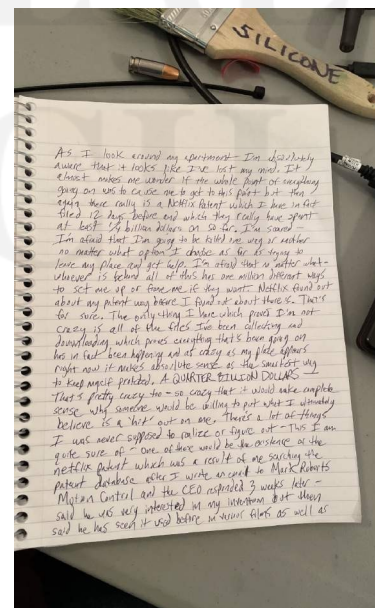 SILICONE
As I look around my apartment - I'm absolutely
aware that it looks like I've lost my mind. It
almost makes me wonder if the whole point of everything
going on was to cause me to get to this point but then
again there really is a Netflix Patent which I have in fact
filed 12 days before and which they really have spent
at least 1/4 billion dollars on so far. I'm scared -
I'm afraid that I'm going to be killed one way or another
no matter what option I choose as far as trying to
leave my place and get help. I'm afraid that no matter what -
whoever is behind all of this has one million different ways
to set me up or frame me if they want. Netflix found out
about my patent way before I found out about there's. That's
for sure. The only thing I have which proves I'm not
crazy is all of the files I've been collecting and
downloading which proves everything that's been going on
has in fact been happening and as crazy as my place appears
right now it makes absolute sense as the smartest way
to keep myself protected. A QUARTER BILLION DOLLARS
That's pretty crazy too - so crazy that it would make complete
sense why someone would be willing to put what I ultimately
believe is a "hit" out on me. There's a lot of things
I was never supposed to realize or figure out - This I am
quite sure of - One of those would be the existence of the
netflix patent which was a result of me searching the
patent database after I wrote an email to Mark Roberts
Motion Control and the CEO responded 3 weeks later -
said he was very interested in my invention but then
said he has seen it used before in various films as well as